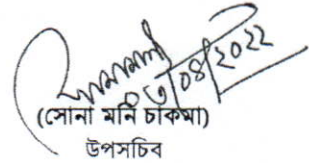 ০৩/০৪/২০২২
(সোনা মনি চাকমা)
উপসচিব